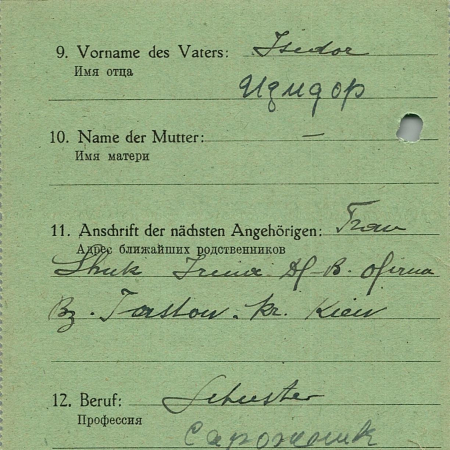 9. Vorname des Vaters: Isidor
Имя отца
Изидор
10. Name der Mutter: —
Имя матери
11. Anschrift der nächsten Angehörigen: Frau
Адрес ближайших родственников
Irina
Bz. Fastow. kr. Kiew
12. Beruf: Schuster
Профессия
Сапожник